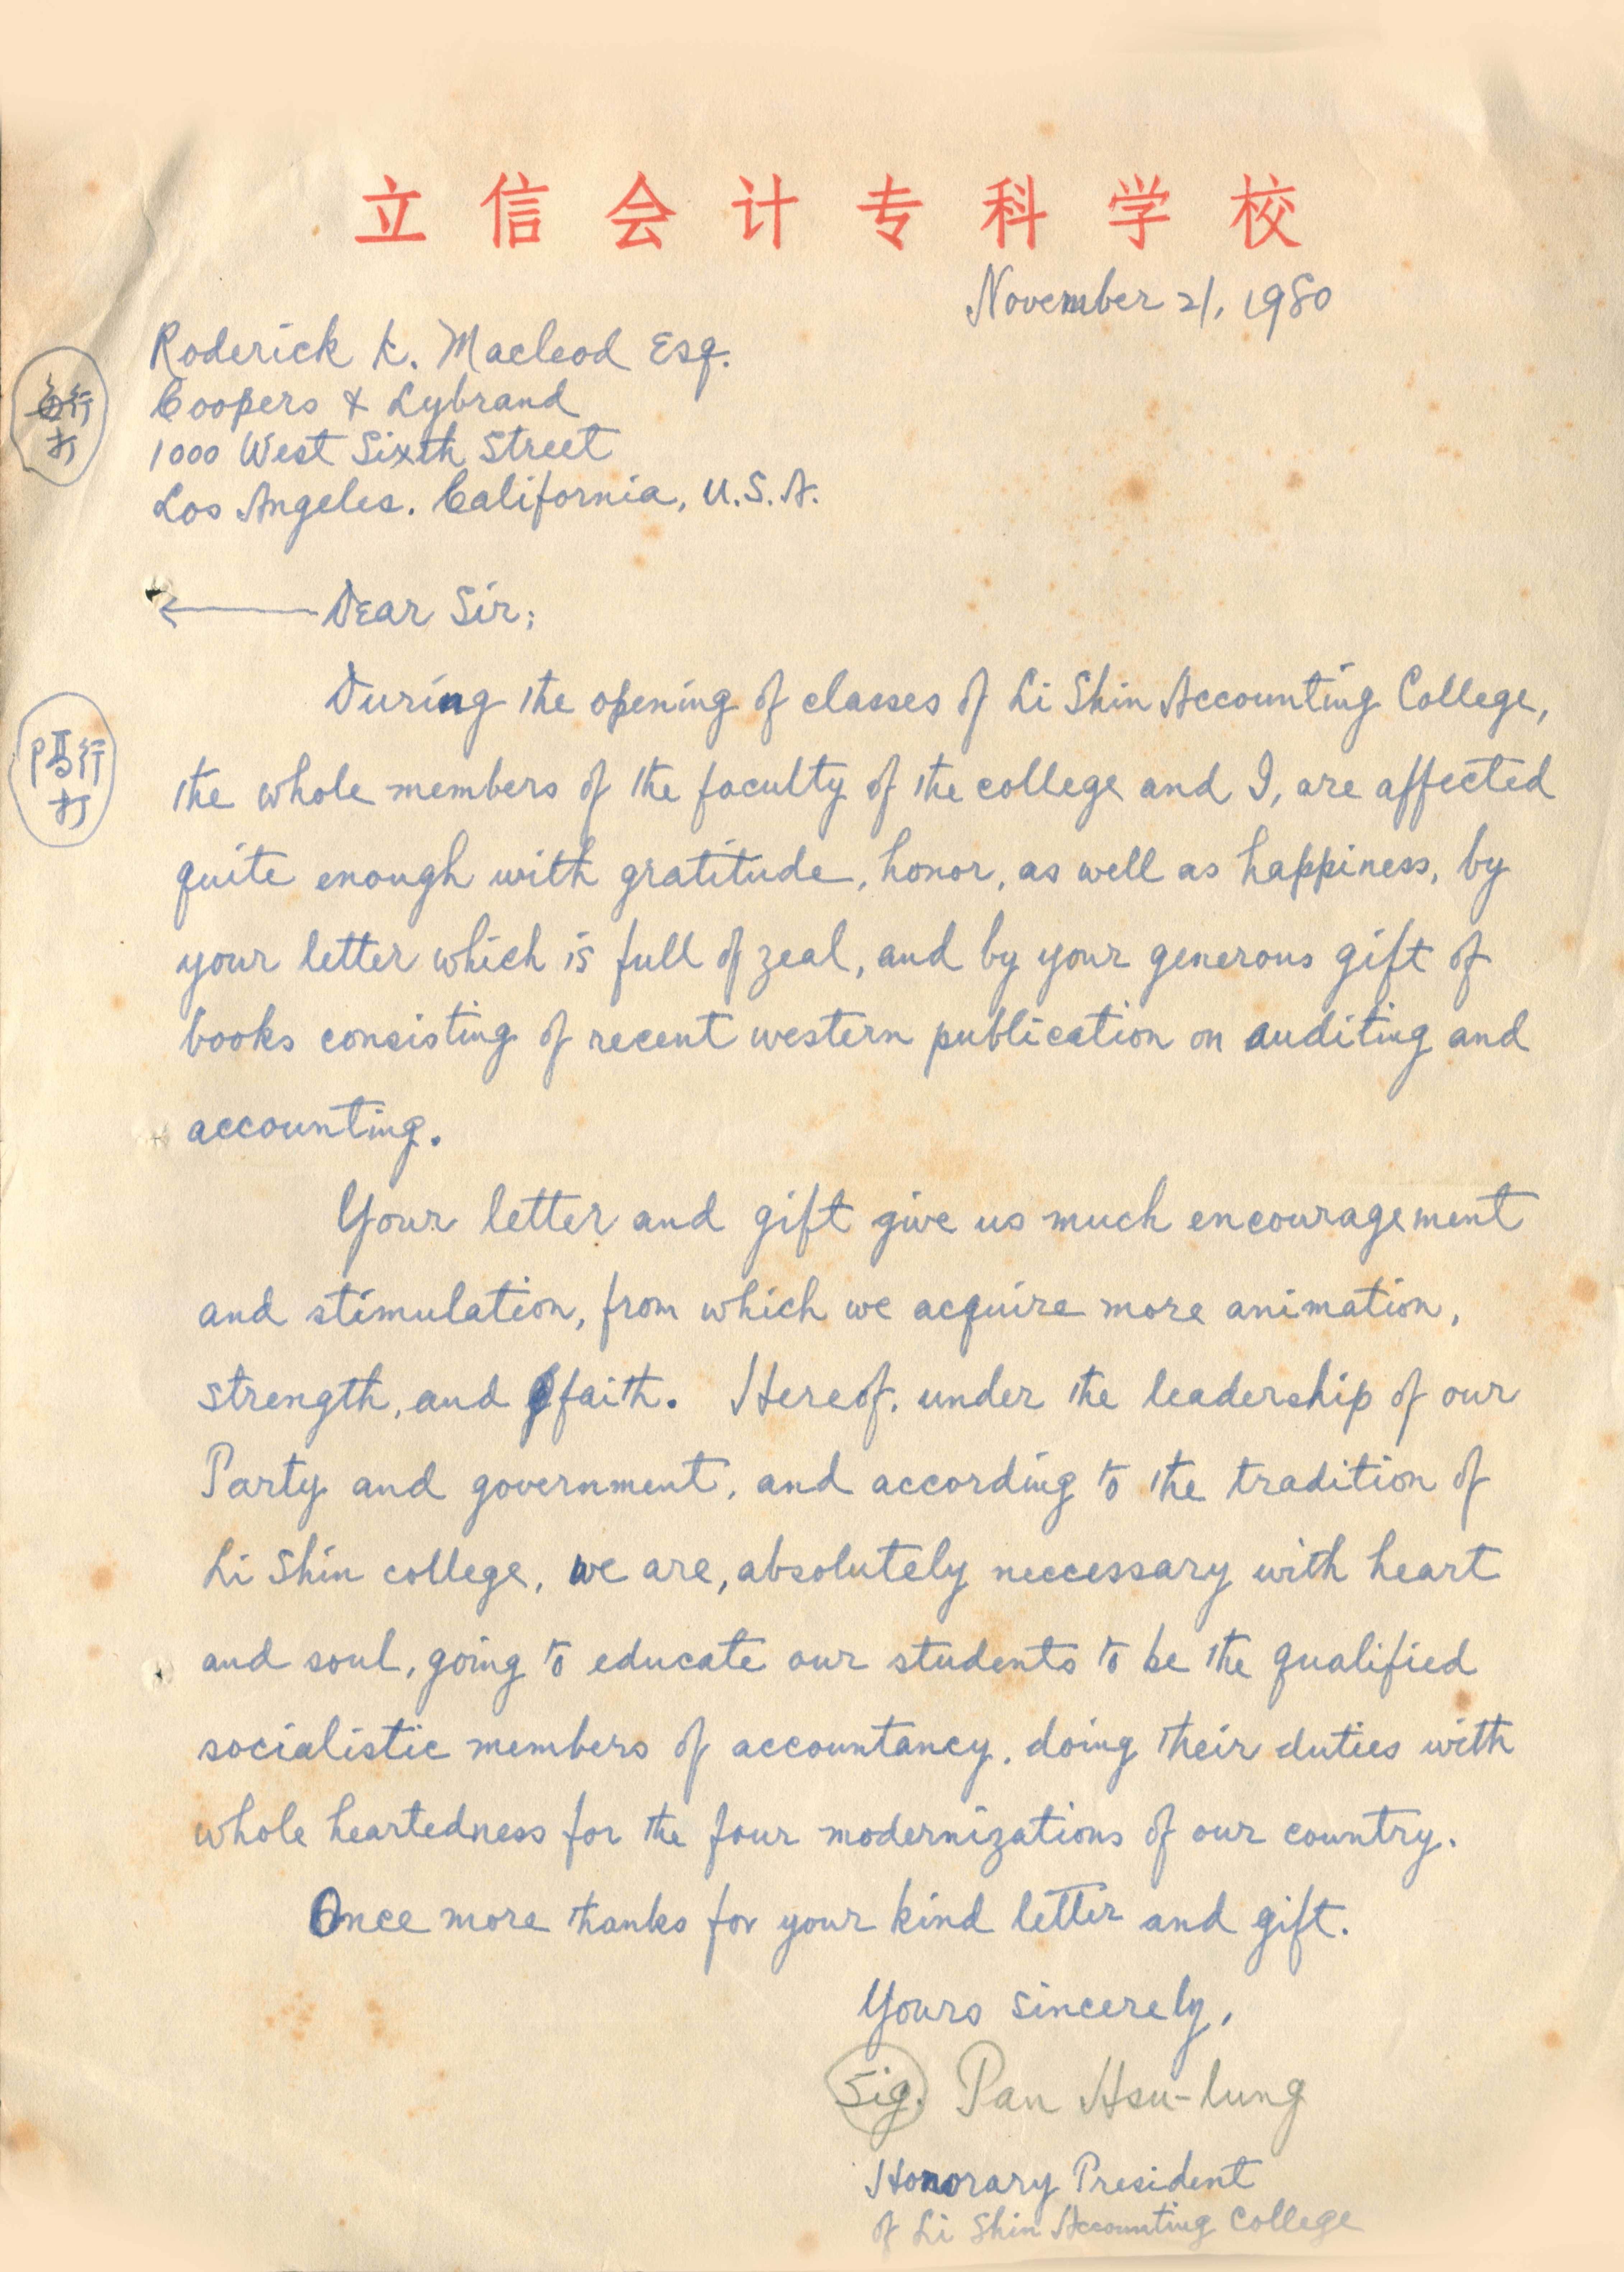 立信会计专科学校
November 21, 1980
Roderick K. Macleod Esq.
Coopers & Lybrand
1000 West Sixth Street
Los Angeles. California, U.S.A.
每行
打
Dear Sir;
During the opening of classes of Li Shin Accounting College,
隔行
打
the whole members of the faculty of the college and I, are affected
quite enough with gratitude, honor, as well as happiness, by
your letter which is full of zeal, and by your generous gift of
books consisting of recent western publication on auditing and
accounting.
Your letter and gift give us much encouragement
and stimulation, from which we acquire more animation,
strength, and faith. Hereof. under the leadership of our
Party and government, and according to the tradition of
Li Shin college, we are, absolutely neccessary with heart
and soul, going to educate our students to be the qualified
socialistic members of accountancy. doing their duties with
whole heartedness for the four modernizations of our country.
Once more thanks for your kind letter and gift.
Yours sincerely,
Sig. Pan Hsu-lung
Honorary President
of Li Shin Accounting College